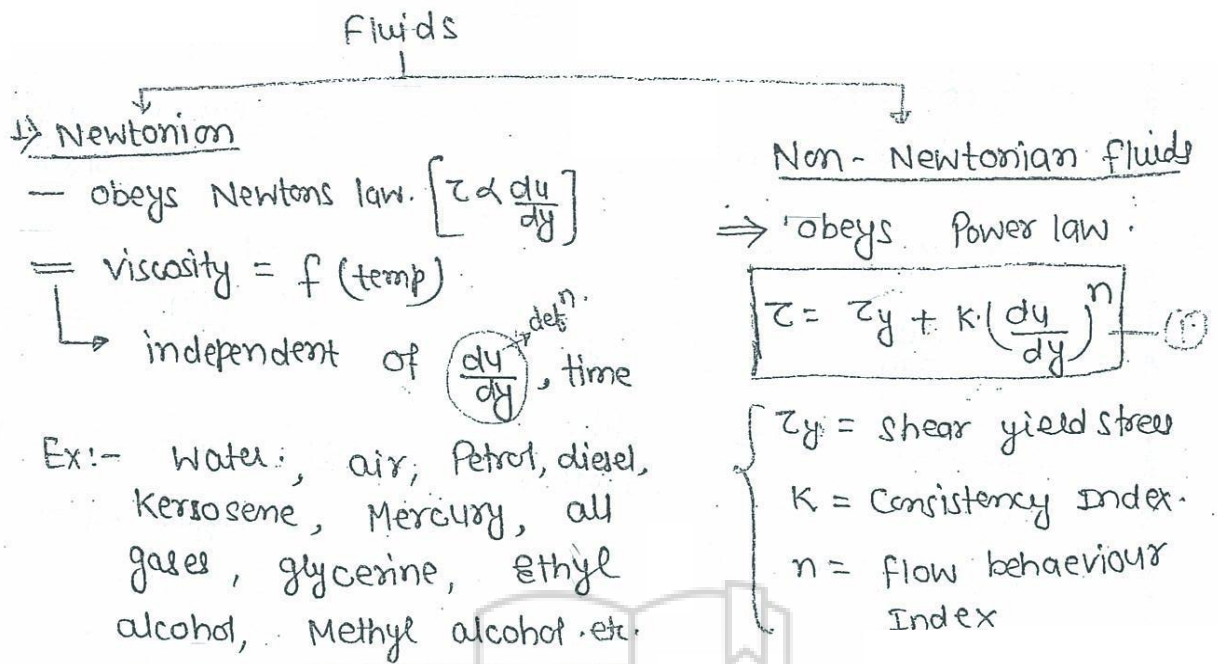 Fluids
1) Newtonion
— obeys Newtons law. [τ α du/dy]
= viscosity = f (temp)
→ independent of du/dy, time
defⁿ.
Ex:- Water;, air, Petrol, diesel,
Kersosene, Mercury, all
gases, glycerine, Ethyl
alcohol, Methyl alcohol .etc.
Non - Newtonian fluids
⇒ obeys Power law.
τ = τy + K.(du/dy)ⁿ — ①
τy = Shear yield stress
K = Consistency Index.
n = flow behaeviour
Index